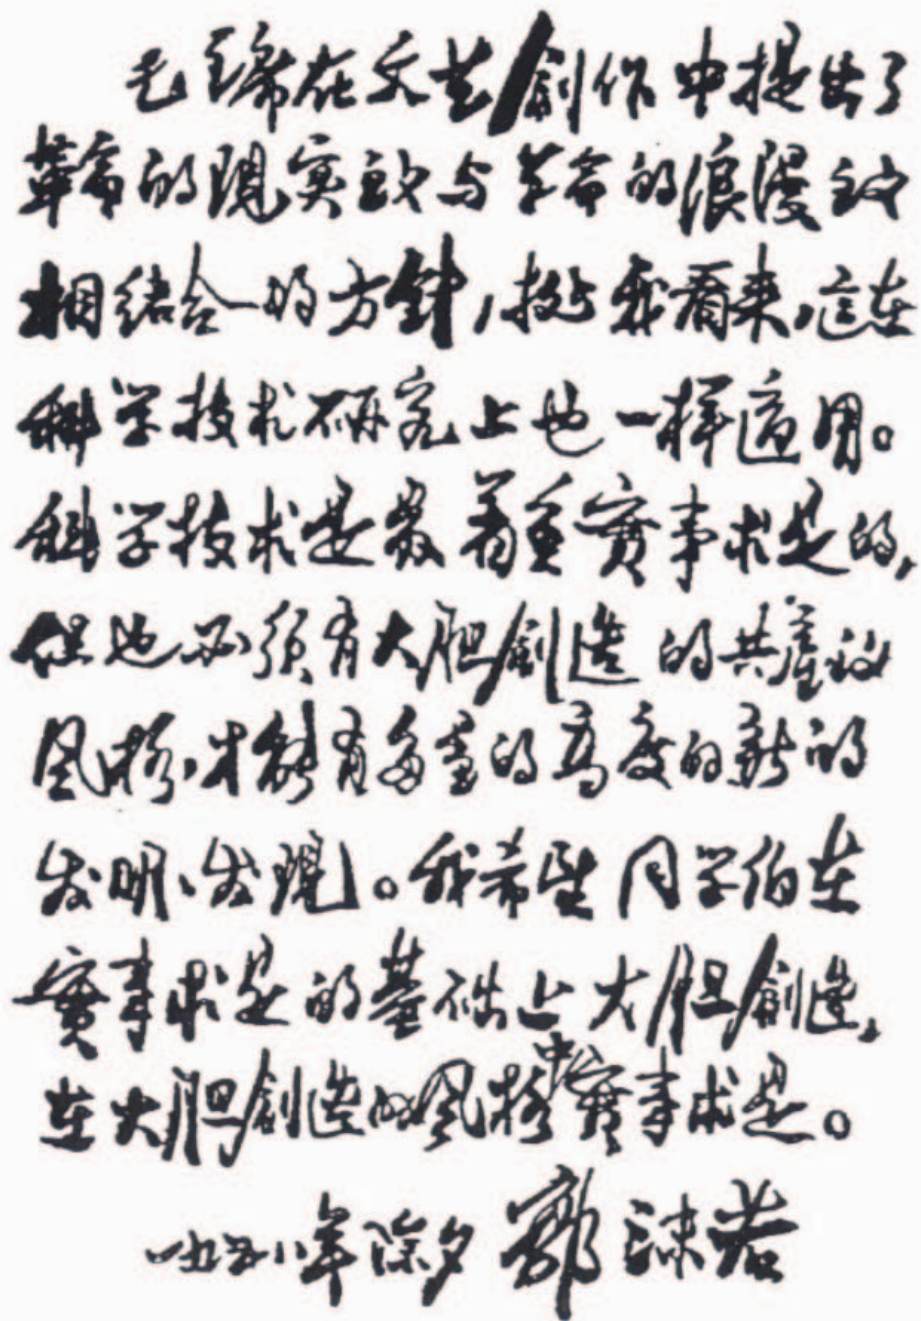 毛主席在文艺創作中提出了
革命的現实主义与革命的浪漫主义
相结合的方針，拠我看来，這在
科学技术研究上也一样適用。
科学技术是最着重實事求是的，
但也必须有大胆創造的共産主义
风格，才能有多量的高度的新的
发明、发現。我希望同学们在
實事求是的基础上大胆創造，
在大胆創造的风格中實事求是。
一九五八年除夕 郭沫若